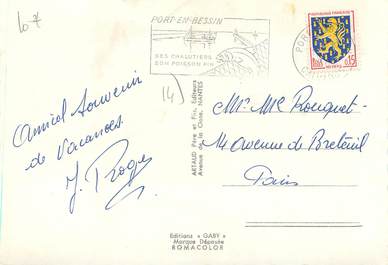 PORT-EN-BESSIN
SES CHALUTIERS
SON POISSON FIN
RÉPUBLIQUE FRANÇAISE
0,15
(4)
Amical Souvenir
de Vacances
J. Roger
ARTAUD Père et Fils, Editeurs
Avenue de la Close, NANTES
Mr. Me Rouquet
14 Avenue de Breteuil
Paris
Editions « GABY »
Marque Déposée
ROMACOLOR